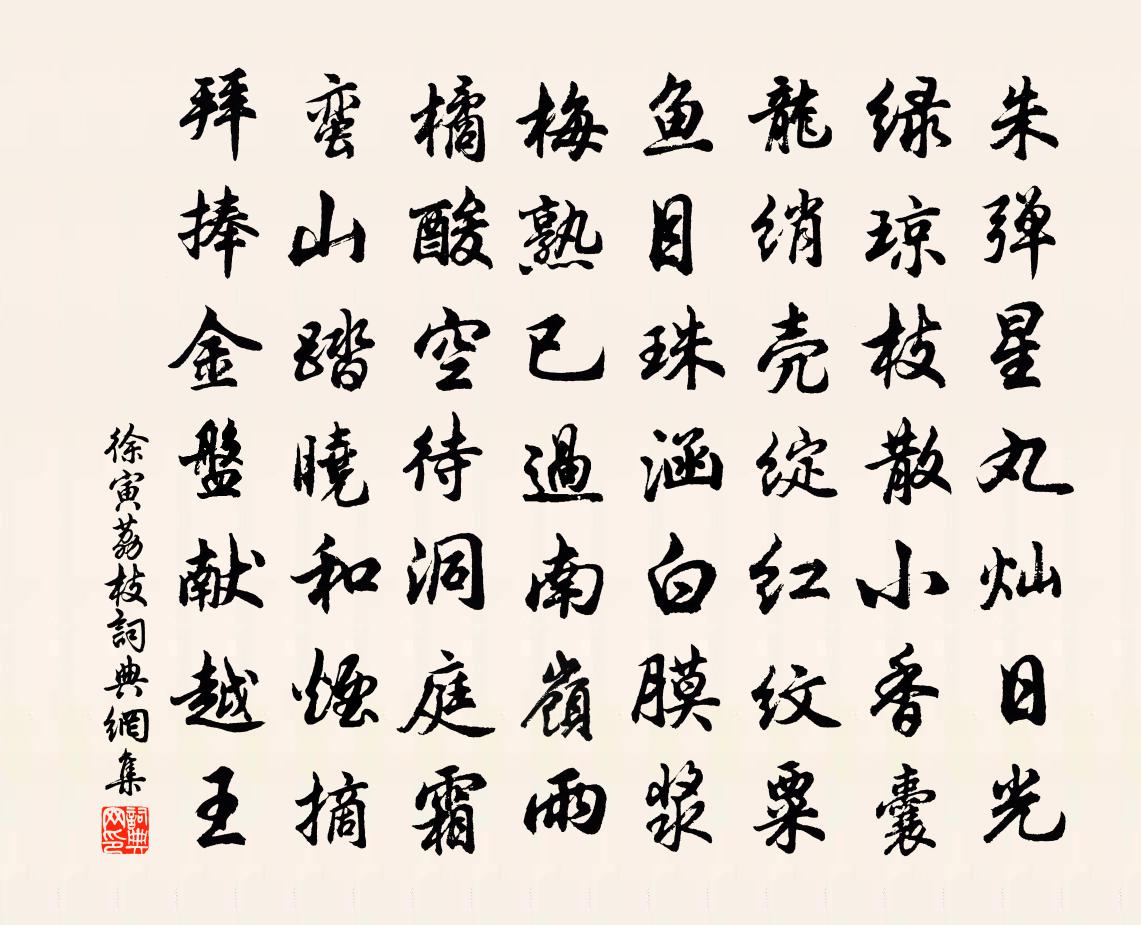 朱弹星丸灿日光
绿琼枝散小香囊
龍绡壳绽红纹粟
鱼目珠涵白膜浆
梅熟已過南嶺雨
橘酸空待洞庭霜
蛮山踏曉和煙摘
拜捧金盤献越王
徐寅荔枝詞典網集
詞典网印